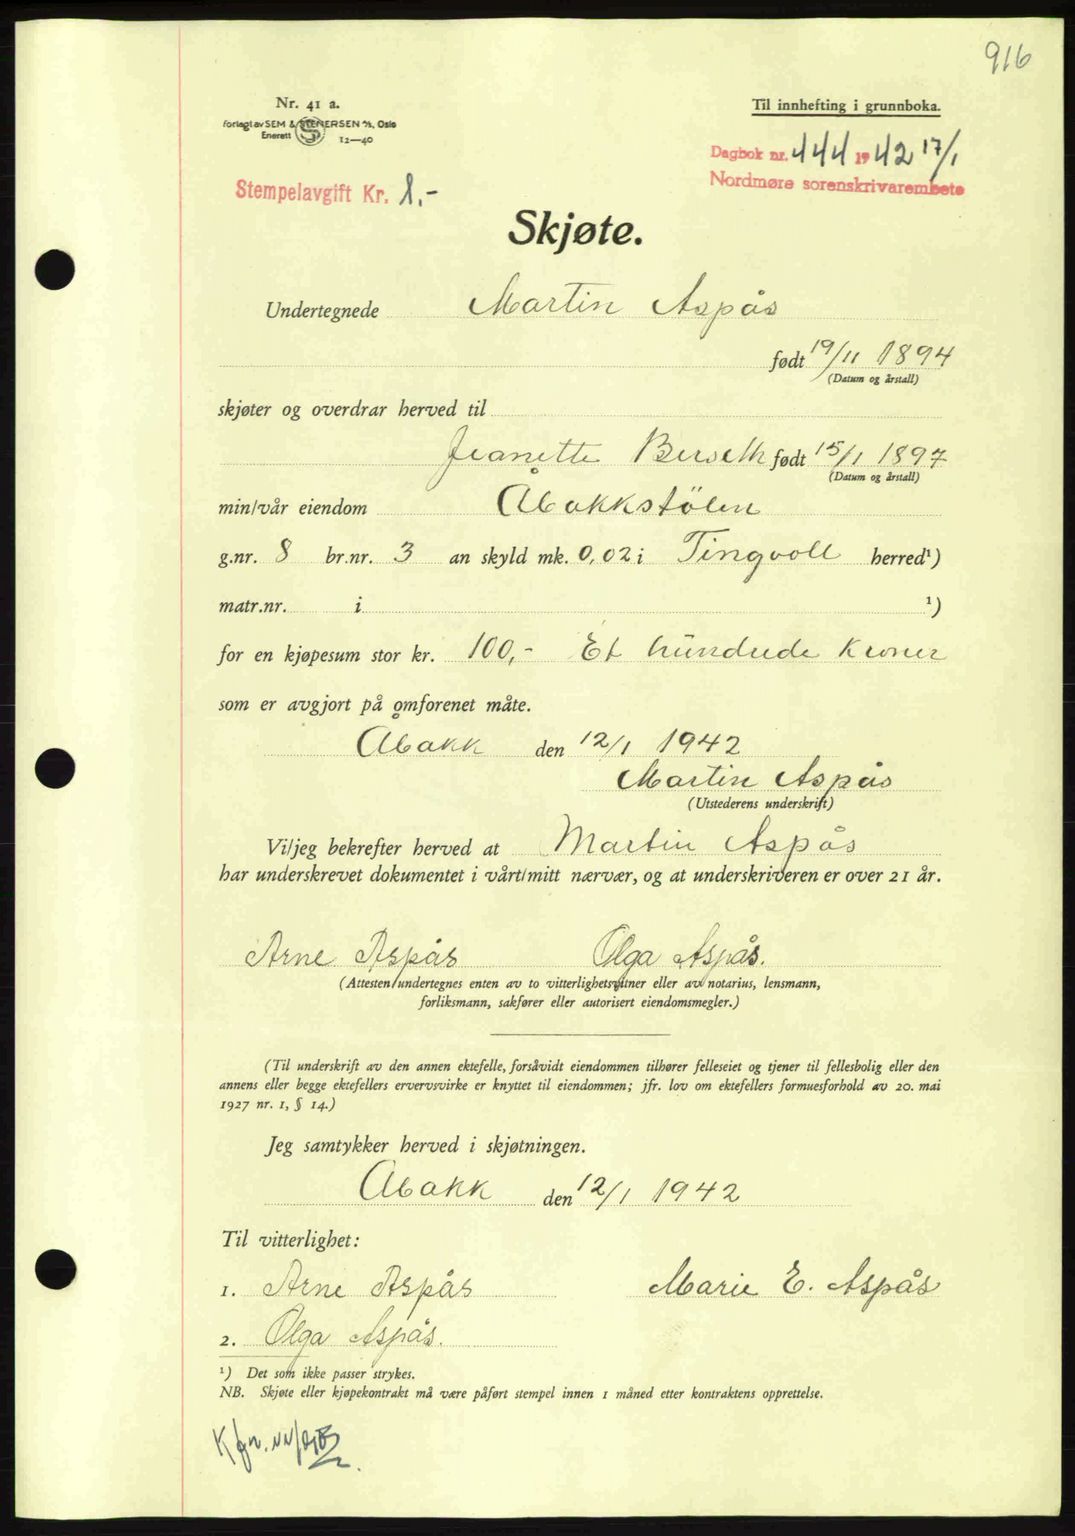 916
Nr. 41 a.
Forlagt av SEM & STENERSEN A/S, Oslo
Enerett 12—40
Til innhefting i grunnboka.
Dagbok nr. 444 1942 17/1
Nordmøre sorenskrivarembete
Stempelavgift Kr. 1.-
Skjøte.
Undertegnede Martin Aspås
født 19/11 1894
(Datum og årstall)
skjøter og overdrar herved til
Jeanette Berseth født 15/1 1897
(Datum og årstall)
min/vår eiendom Åbakkstölen
g.nr. 8 br.nr. 3 an skyld mk. 0,02 i Tingvoll herred¹)
matr.nr. i ¹)
for en kjøpesum stor kr. 100,- Et hundrede kroner
som er avgjort på omforenet måte.
Åbakk den 12/1 1942
Martin Aspås
(Utstederens underskrift)
Vi/jeg bekrefter herved at Martin Aspås
har underskrevet dokumentet i vårt/mitt nærvær, og at underskriveren er over 21 år.
Arne Aspås Olga Aspås.
(Attesten undertegnes enten av to vitterlighetsvitner eller av notarius, lensmann,
forliksmann, sakfører eller autorisert eiendomsmegler.)
(Til underskrift av den annen ektefelle, forsåvidt eiendommen tilhører felleseiet og tjener til fellesbolig eller den
annens eller begge ektefellers ervervsvirke er knyttet til eiendommen; jfr. lov om ektefellers formuesforhold av 20. mai
1927 nr. 1, § 14.)
Jeg samtykker herved i skjøtningen.
Åbakk den 12/1 1942
Til vitterlighet:
1. Arne Aspås Marie E. Aspås
2. Olga Aspås.
¹) Det som ikke passer strykes.
NB. Skjøte eller kjøpekontrakt må være påført stempel innen 1 måned etter kontraktens opprettelse.